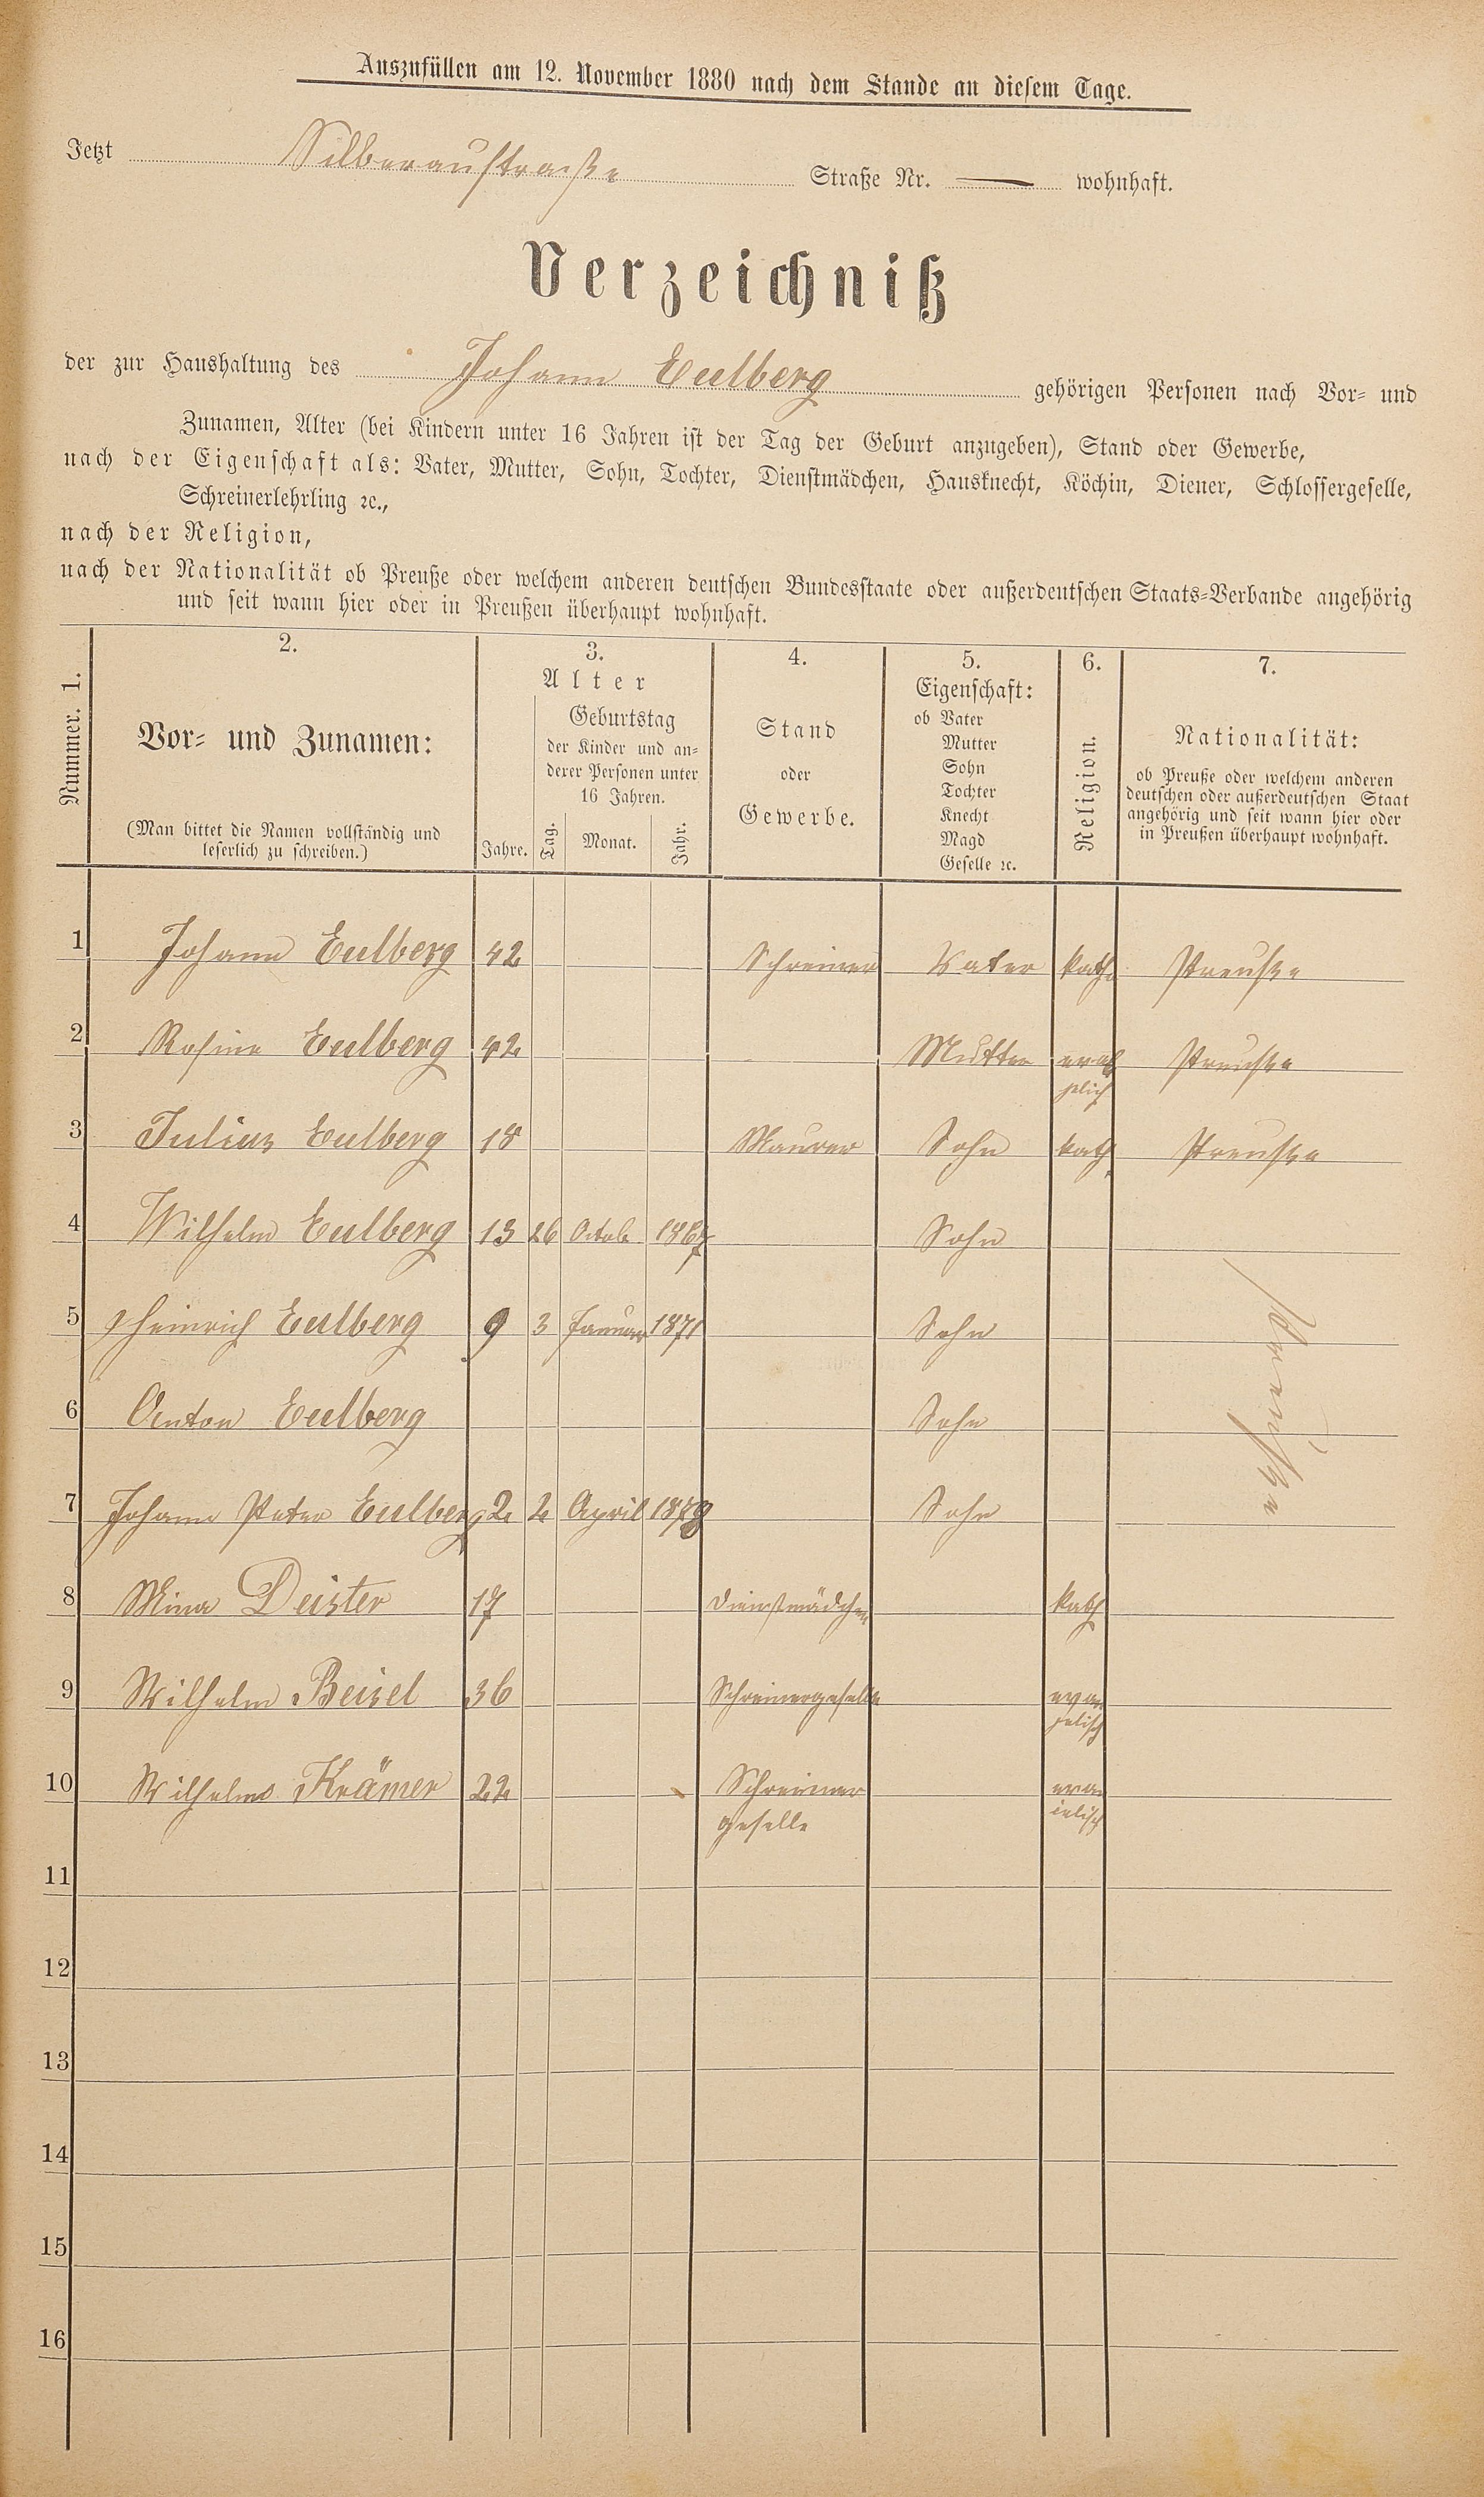 Auszufüllen am 12. November 1880 nach dem Stande an diesem Tage.
Jetzt Silberaustraße Straße Nr. — wohnhaft.
Verzeichniß
der zur Haushaltung des Johann Eulberg gehörigen Personen nach Vor- und
Zunamen, Alter (bei Kindern unter 16 Jahren ist der Tag der Geburt anzugeben), Stand oder Gewerbe,
nach der Eigenschaft als: Vater, Mutter, Sohn, Tochter, Dienstmädchen, Hausknecht, Köchin, Diener, Schlossergeselle,
Schreinerlehrling ꝛc.,
nach der Religion,
nach der Nationalität ob Preuße oder welchem anderen deutschen Bundesstaate oder außerdeutschen Staats-Verbande angehörig
und seit wann hier oder in Preußen überhaupt wohnhaft.
Nummer. 1.
2.
Vor- und Zunamen:
(Man bittet die Namen vollständig und
leserlich zu schreiben.)
3.
Alter
Jahre.
Geburtstag
der Kinder und an-
derer Personen unter
16 Jahren.
Tag. Monat. Jahr.
4.
Stand
oder
Gewerbe.
5.
Eigenschaft:
ob Vater
Mutter
Sohn
Tochter
Knecht
Magd
Geselle ꝛc.
6.
Religion.
7.
Nationalität:
ob Preuße oder welchem anderen
deutschen oder außerdeutschen Staat
angehörig und seit wann hier oder
in Preußen überhaupt wohnhaft.
1 Johann Eulberg 42 Schreiner Vater kath. Preuße
2 Rosine Eulberg 42 Mutter Preuße
3 Julius Eulberg 18 Maurer Sohn kath. Preuße
4 Wilhelm Eulberg 13 26 Octob 1867 Sohn
5 Heinrich Eulberg 9 3 Januar 1871 Sohn
Preuße
6 Anton Eulberg Sohn
7 Johann Peter Eulberg 2 2 April 1878 Sohn
8 Mina Deister 17 Dienstmädchen kath
9 Wilhelm Beisel 36 Schreinergeselle evan
gelisch
10 Wilhelm Krämer 22 Schreiner evan
geselle gelisch
11
12
13
14
15
16